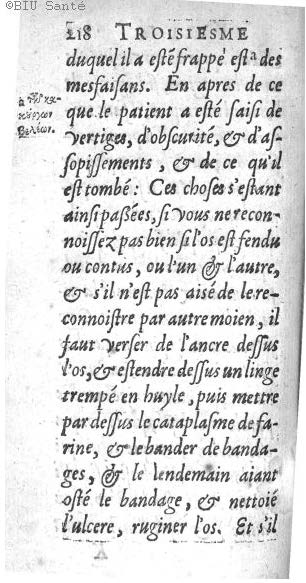 ©BIU Santé
218 TROISIESME
duquel il a esté frappé est ᵃ des
mesfaisans. En apres de ce
que le patient a esté saisi de
vertiges, d'obscurité, & d'as-
sopissements, & de ce qu'il
est tombé : Ces choses s'estant
ainsi passées, si vous ne recon-
noissez pas bien si l'os est fendu
ou contus, ou l'un & l'autre,
& s'il n'est pas aisé de le re-
connoistre par autre moien, il
faut verser de l'ancre dessus
l'os, & estendre dessus un linge
trempé en huyle, puis mettre
par dessus le cataplasme de fa-
rine, & le bander de banda-
ges, & le lendemain aiant
osté le bandage, & nettoié
l'ulcere, ruginer l'os. Et s'il